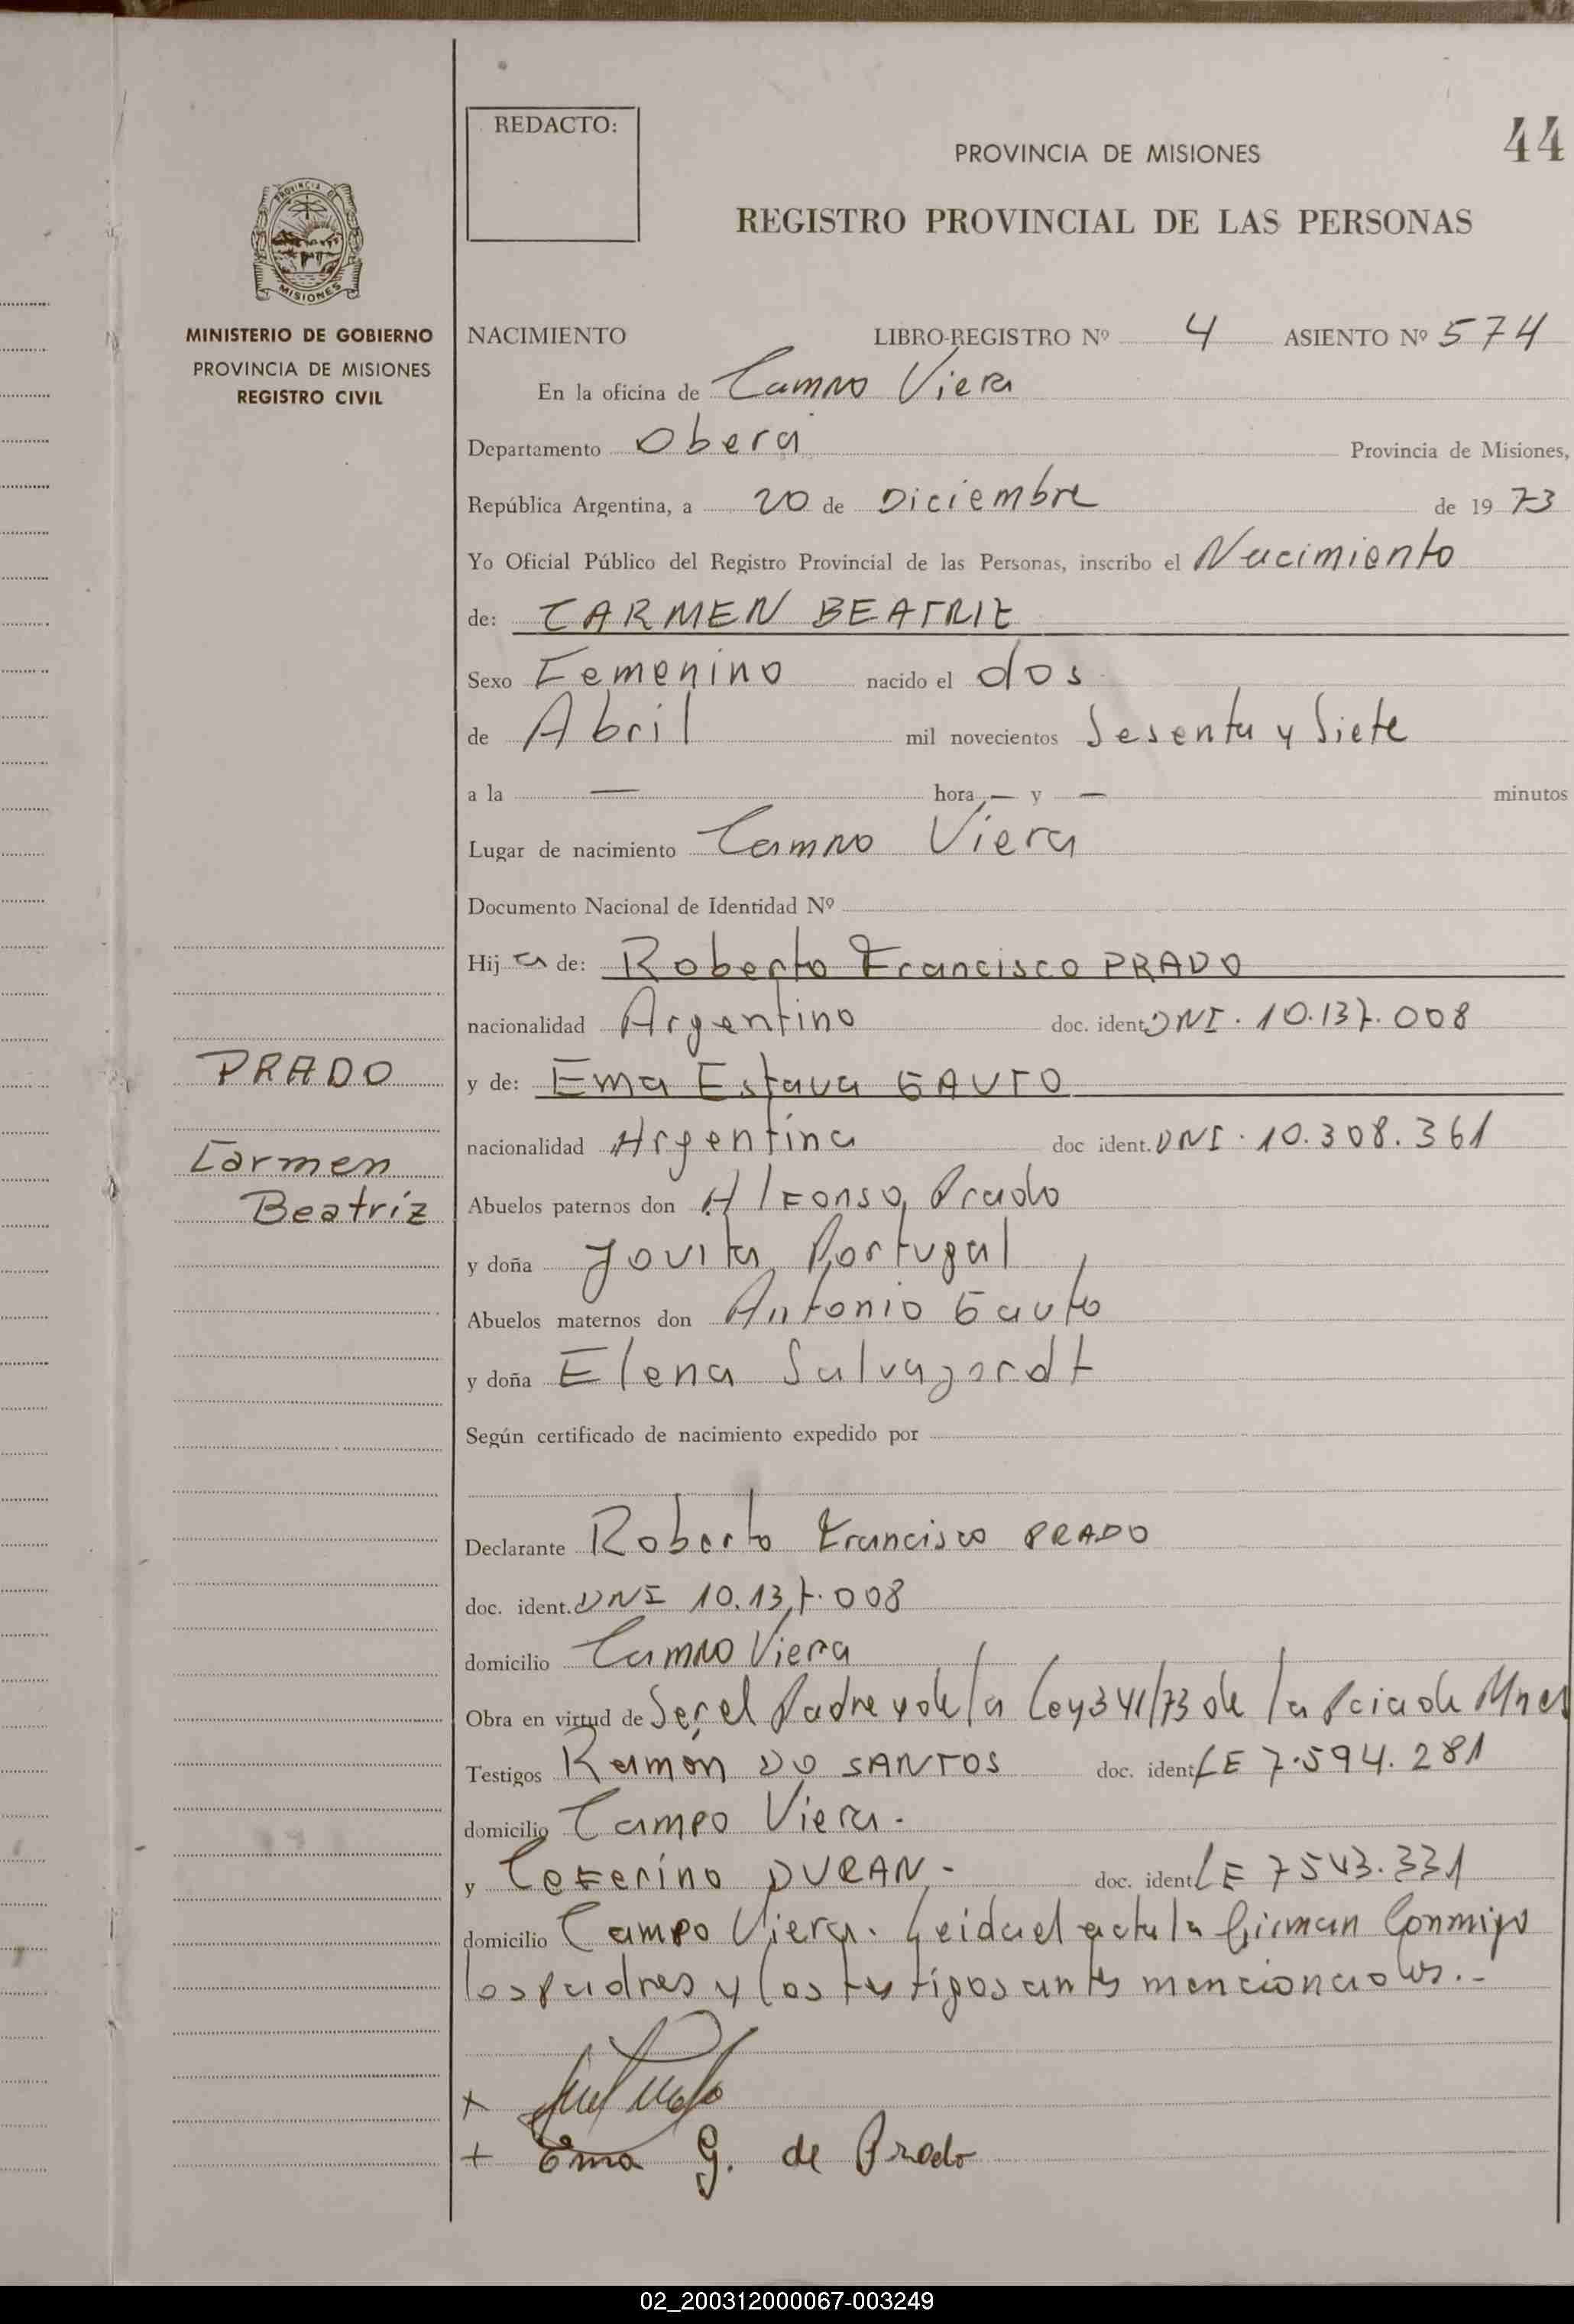 REDACTO:
PROVINCIA DE MISIONES
44
REGISTRO PROVINCIAL DE LAS PERSONAS
PROVINCIA DE
MISIONES
MINISTERIO DE GOBIERNO
PROVINCIA DE MISIONES
REGISTRO CIVIL
NACIMIENTO LIBRO-REGISTRO Nº 4 ASIENTO Nº 574
En la oficina de Campo Viera
Departamento Oberá Provincia de Misiones,
República Argentina, a 20 de Diciembre de 1973
Yo Oficial Público del Registro Provincial de las Personas, inscribo el Nacimiento
de: CARMEN BEATRIZ
Sexo Femenino nacido el dos
de Abril mil novecientos Sesenta y Siete
a la — hora — y — minutos
Lugar de nacimiento Campo Viera
Documento Nacional de Identidad Nº
Hij a de: Roberto Francisco PRADO
nacionalidad Argentino doc. ident. DNI. 10.137.008
PRADO
Carmen
Beatríz
y de: Ema Estava GAUTO
nacionalidad Argentina doc ident. DNI. 10.308.361
Abuelos paternos don Alfonso Prado
y doña Jovita Portugal
Abuelos maternos don Antonio Gauto
y doña Elena
Según certificado de nacimiento expedido por
Declarante Roberto Francisco PRADO
doc. ident. DNI 10.137.008
domicilio Campo Viera
Obra en virtud de Ser el Padre y de la Ley 341/73 de la Pcia de Mnes
Testigos Ramón DO SANTOS doc. ident. LE 7.594.281
domicilio Campo Viera.
y Ceferino DURAN - doc. ident. LE 7543.331
domicilio Campo Viera. Leida el acta la firman Conmigo
los padres y los testigos antes mencionados.-
+
+ Ema G. de Prado
02_200312000067-003249